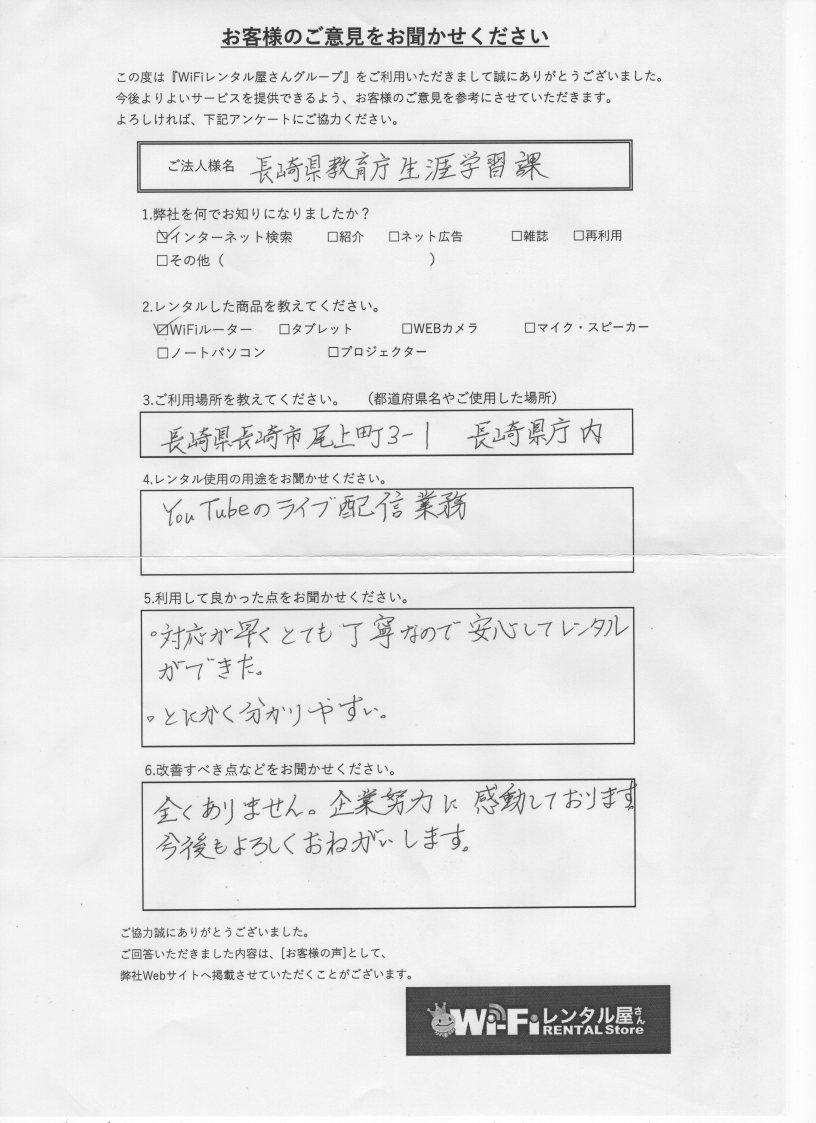 お客様のご意見をお聞かせください
この度は『WiFiレンタル屋さんグループ』をご利用いただきまして誠にありがとうございました。
今後よりよいサービスを提供できるよう、お客様のご意見を参考にさせていただきます。
よろしければ、下記アンケートにご協力ください。
ご法人様名 長崎県教育庁生涯学習課
1.弊社を何でお知りになりましたか？
☑インターネット検索 □紹介 □ネット広告 □雑誌 □再利用
□その他（ ）
2.レンタルした商品を教えてください。
☑WiFiルーター □タブレット □WEBカメラ □マイク・スピーカー
□ノートパソコン □プロジェクター
3.ご利用場所を教えてください。 （都道府県名やご使用した場所）
長崎県長崎市尾上町3-1 長崎県庁内
4.レンタル使用の用途をお聞かせください。
YouTubeのライブ配信業務
5.利用して良かった点をお聞かせください。
○対応が早くとても丁寧なので安心してレンタル
ができた。
○とにかく分かりやすい。
6.改善すべき点などをお聞かせください。
全くありません。企業努力に感動しております
今後もよろしくおねがいします。
ご協力誠にありがとうございました。
ご回答いただきました内容は、[お客様の声]として、
弊社Webサイトへ掲載させていただくことがございます。
Wi-Fiレンタル屋さん
RENTAL Store